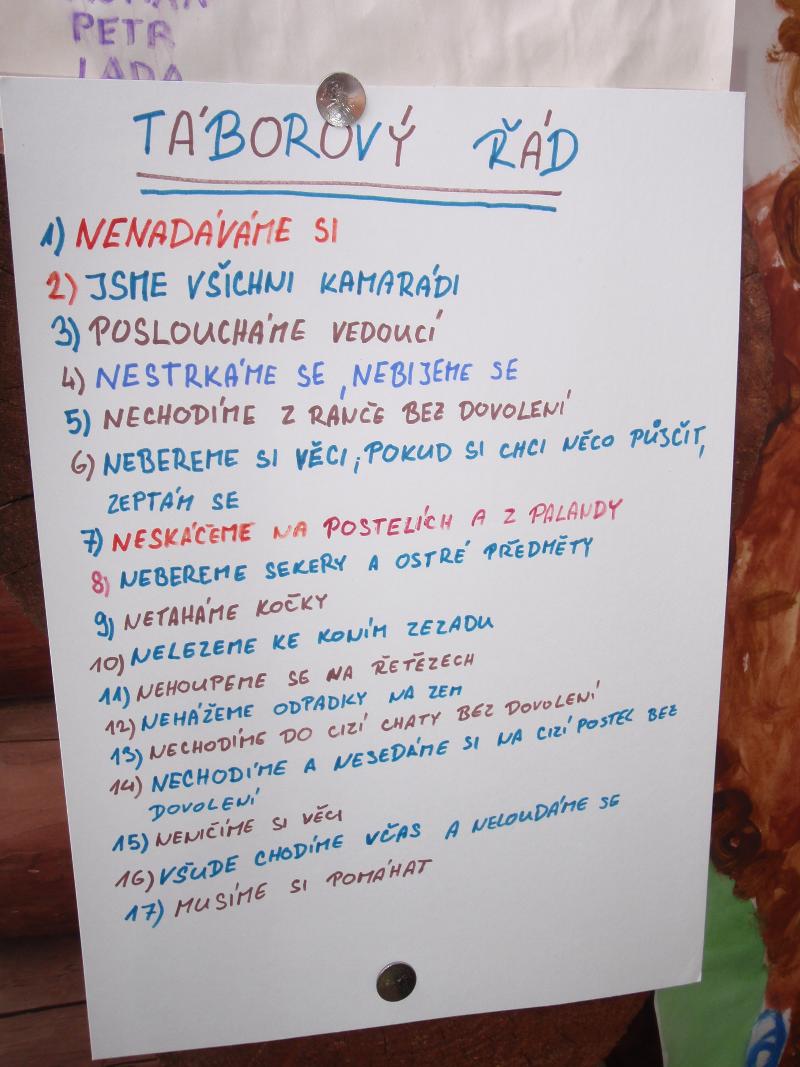 PETR
LADA
TÁBOROVÝ ŘÁD
1) NENADÁVÁME SI
2) JSME VŠICHNI KAMARÁDI
3) POSLOUCHÁME VEDOUCÍ
4) NESTRKÁME SE, NEBIJEME SE
5) NECHODÍME Z RANČE BEZ DOVOLENÍ
6) NEBEREME SI VĚCI, POKUD SI CHCI NĚCO PŮJSČIT,
ZEPTÁM SE
7) NESKÁČEME NA POSTELÍCH A Z PALANDY
8) NEBEREME SEKERY A OSTRÉ PŘEDMĚTY
9) NETAHÁME KOČKY
10) NELEZEME KE KONÍM ZEZADU
11) NEHOUPEME SE NA ŘETĚZECH
12) NEHÁŽEME ODPADKY NA ZEM
13) NECHODÍME DO CIZÍ CHATY BEZ DOVOLENÍ
14) NECHODÍME A NESEDÁME SI NA CIZÍ POSTEL BEZ
DOVOLENÍ
15) NENIČÍME SI VĚCI
16) VŠUDE CHODÍME VČAS A NELOUDÁME SE
17) MUSÍME SI POMÁHAT